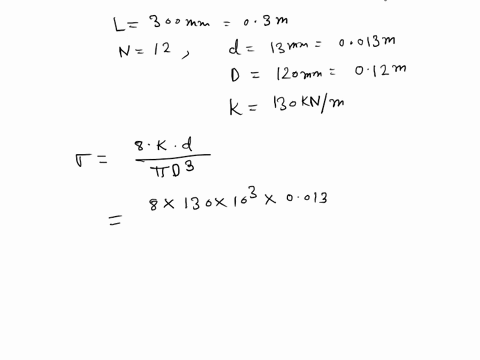 L = 300mm = 0.3m
N = 12 , d = 13mm = 0.013m
D = 120mm = 0.12m
K = 130KN/m
τ = 8·K·d / πD³
= 8 × 130 × 10³ × 0.013